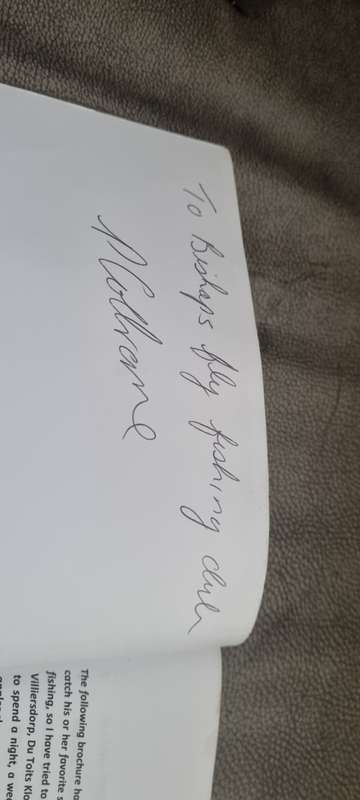 To Bishops fly fishing club
The following brochure ha
catch his or her favorite s
fishing, so I have tried to
Villiersdorp, Du Toits Klo
to spend a night, a wee